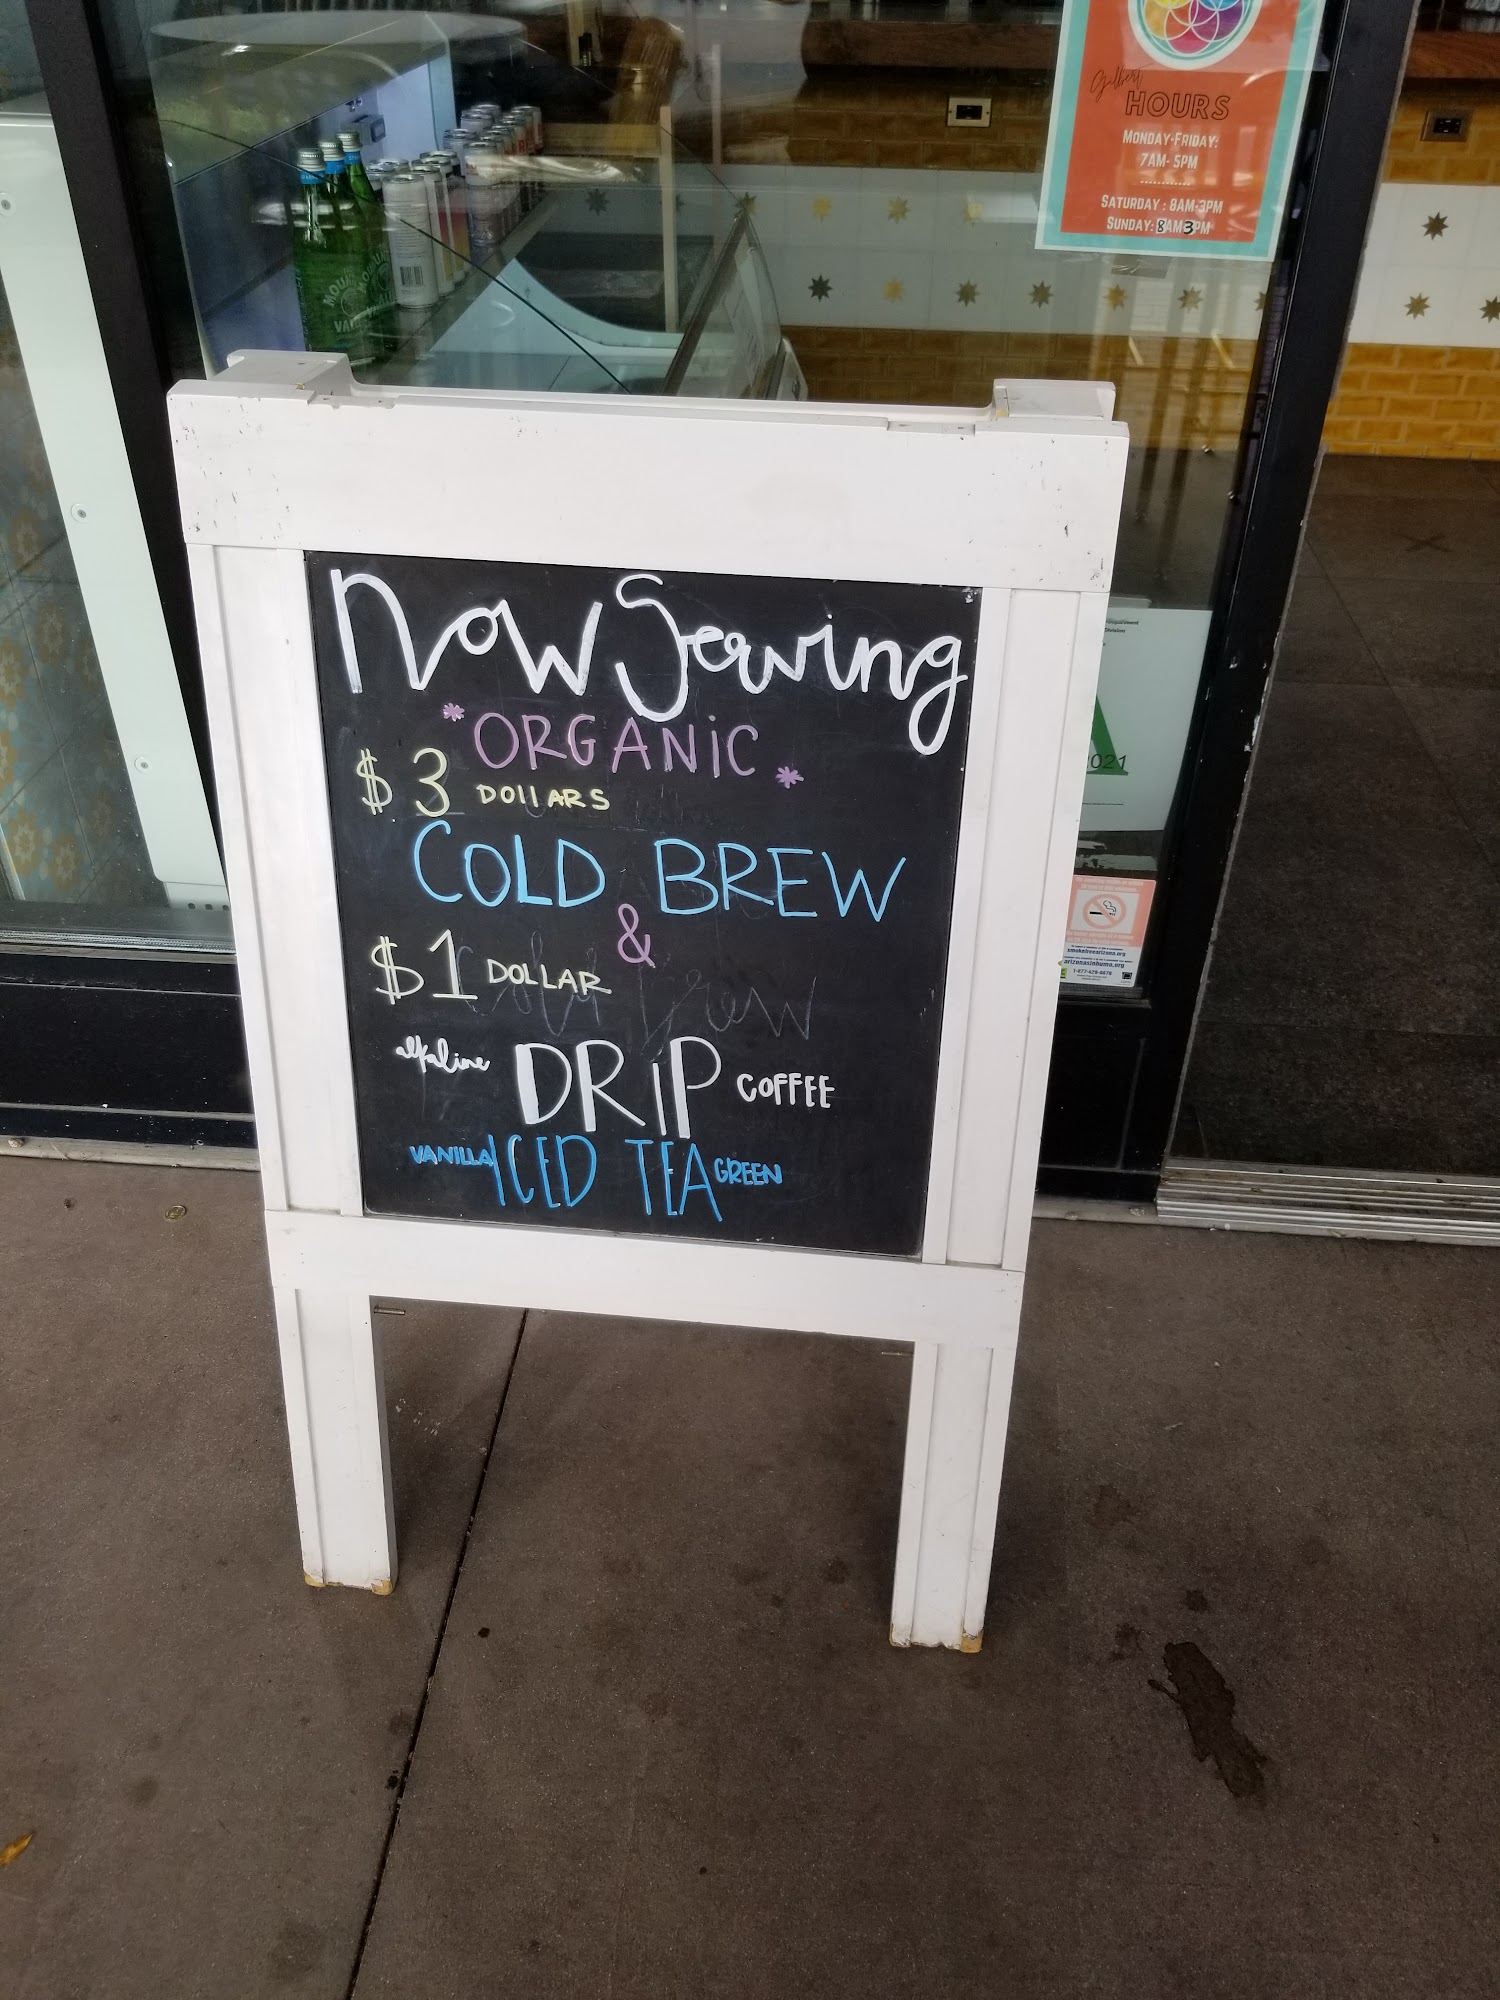 Gilbert
HOURS
MONDAY-FRIDAY:
7AM- 5PM
............
SATURDAY : 8AM-3PM
SUNDAY: 8AM-3PM
Now Serving
*ORGANIC*
$3 DOLLARS
COLD BREW
&
$1 DOLLAR
Cold Brew
alkaline DRIP COFFEE
VANILLA ICED TEA GREEN
2021
smokefreearizona.org
arizonasinhumo.org
1-877-429-6676